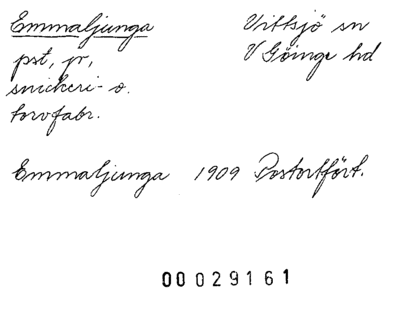 Emmaljunga
Vittsjö sn
V Göinge hd
pst, jr,
snickeri- o.
torvfabr.
Emmaljunga 1909 Postortfört.
00029161